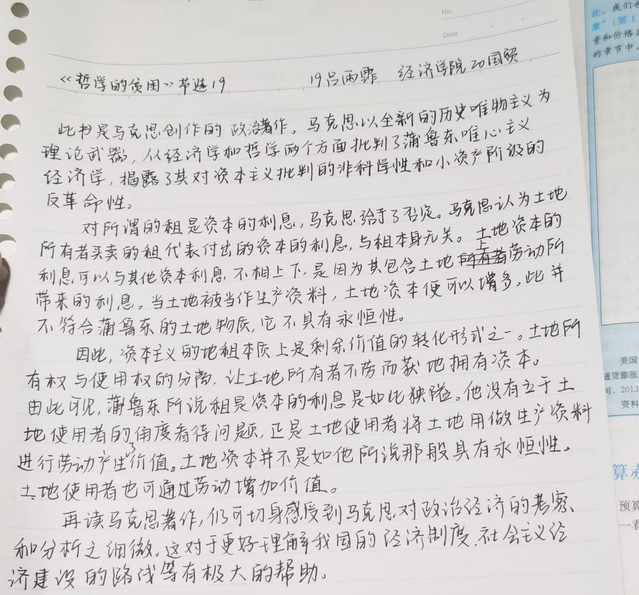 No.
Date
《哲学的贫困》节选19 19吕雨霏 经济学院20国贸
此书是马克思创作的政治著作。马克思以全新的历史唯物主义为
理论武器，从经济学和哲学两个方面批判了蒲鲁东唯心主义
经济学，揭露了其对资本主义批判的非科学性和小资产阶级的
反革命性。
对所谓的租是资本的利息，马克思给予了否定。马克思认为土地
所有者买卖的租代表付出的资本的利息，与租本身无关。土地资本的
利息可以与其他资本利息不相上下，是因为其包含土地上劳动所
带来的利息。当土地被当作生产资料，土地资本便可以增多。此并
不符合蒲鲁东的土地物质，它不具有永恒性。
因此，资本主义的地租本质上是剩余价值的转化形式之一。土地所
有权与使用权的分离，让土地所有者不劳而获地拥有资本。
由此可见，蒲鲁东所说租是资本的利息是如此狭隘。他没有立于土
地使用者的角度看待问题，正是土地使用者将土地用做生产资料
进行劳动产生了价值。土地资本并不是如他所说那般具有永恒性。
土地使用者也可通过劳动增加价值。
再读马克思著作，仍可切身感受到马克思对政治经济的考察、
和分析之细微。这对于更好理解我国的经济制度、社会主义经
济建设的路线等有极大的帮助。
我们
章"（第1
资和价格
的章节中
美国
通货膨胀
2013
资料
算
预算
一看